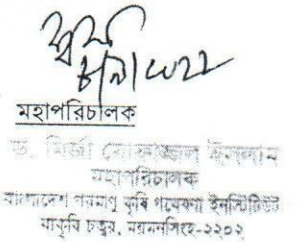 মহাপরিচালক
ড. মির্জা মোফাজ্জল ইসলাম
মহাপরিচালক
বাংলাদেশ পরমাণু কৃষি গবেষণা ইনস্টিটিউট
বাকৃবি চত্বর, ময়মনসিংহ-২২০২